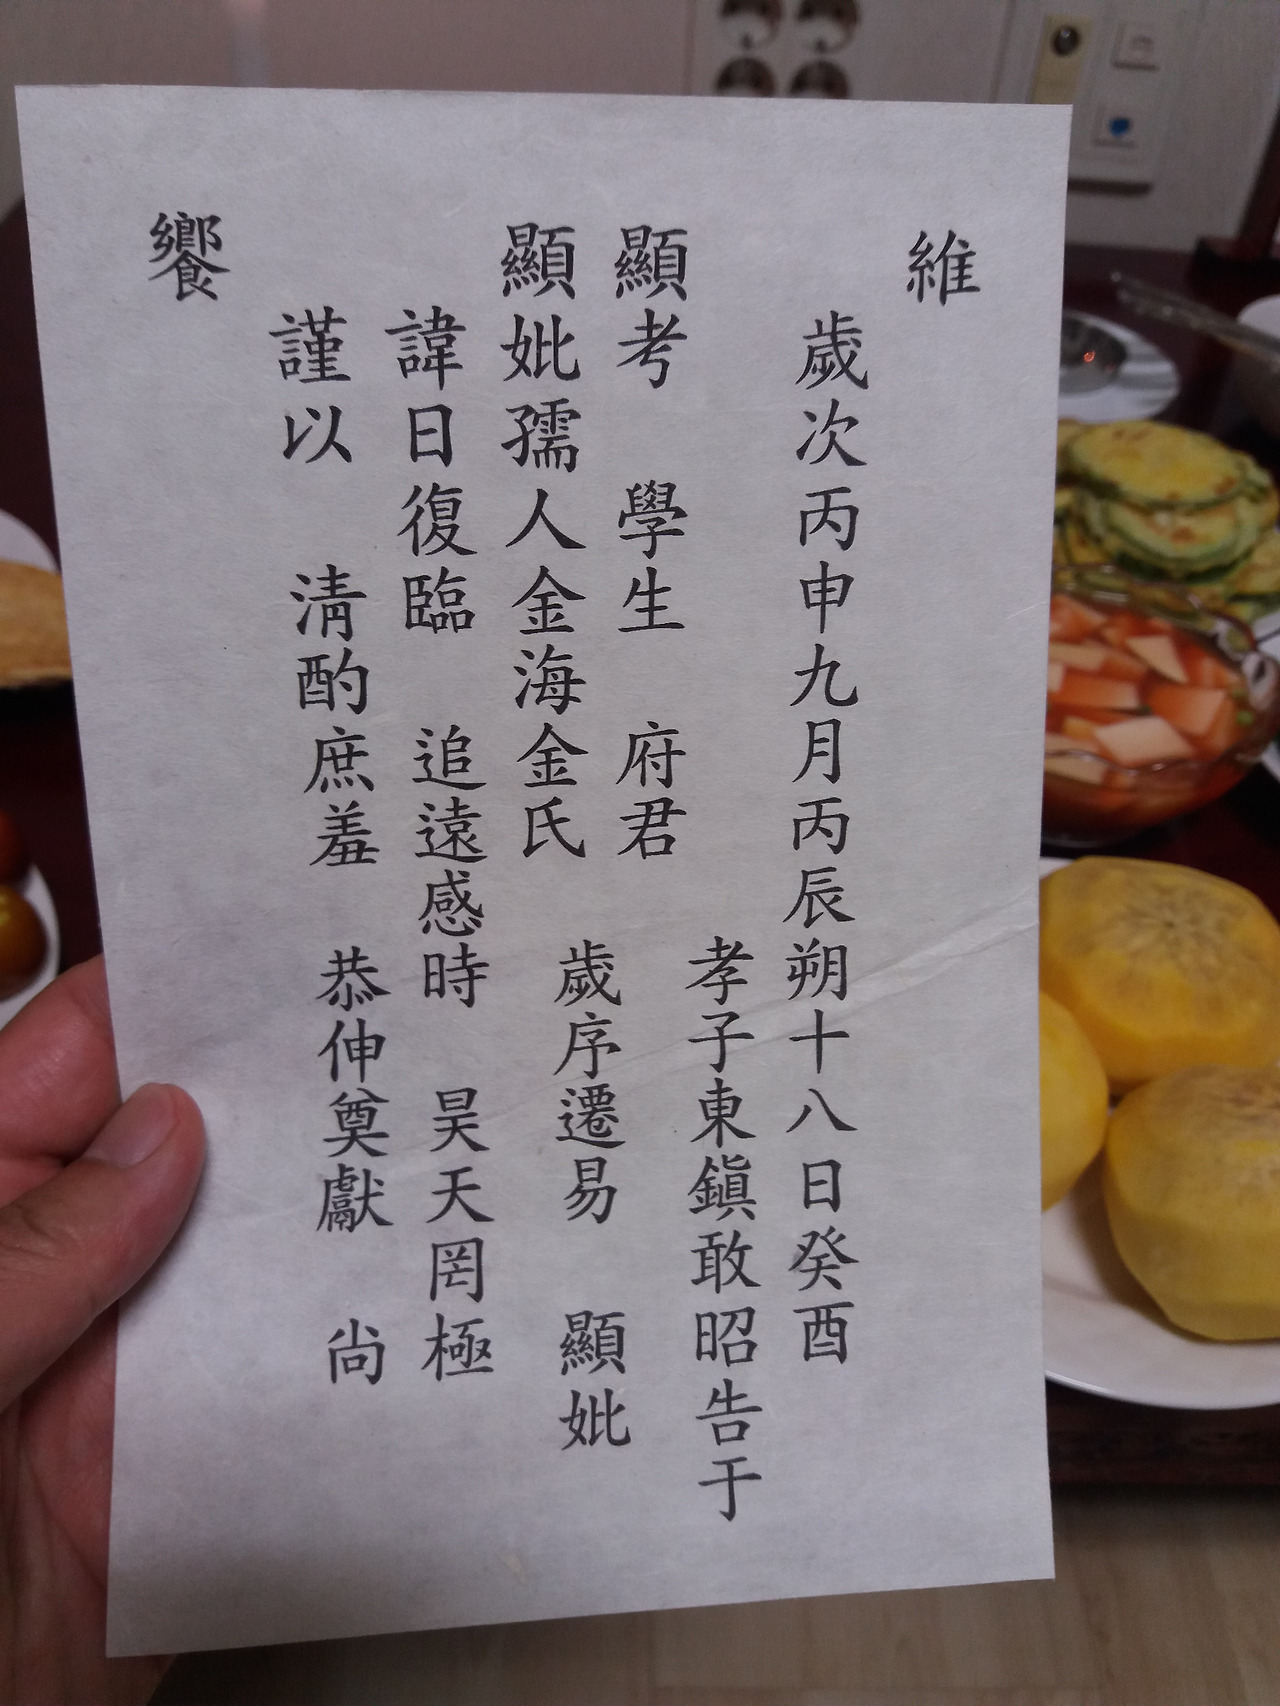 維
歲次丙申九月丙辰朔十八日癸酉
孝子東鎭敢昭告于
顯考 學生 府君
顯妣孺人金海金氏 歲序遷易 顯妣
諱日復臨 追遠感時 昊天罔極
謹以 淸酌庶羞 恭伸奠獻 尚
饗